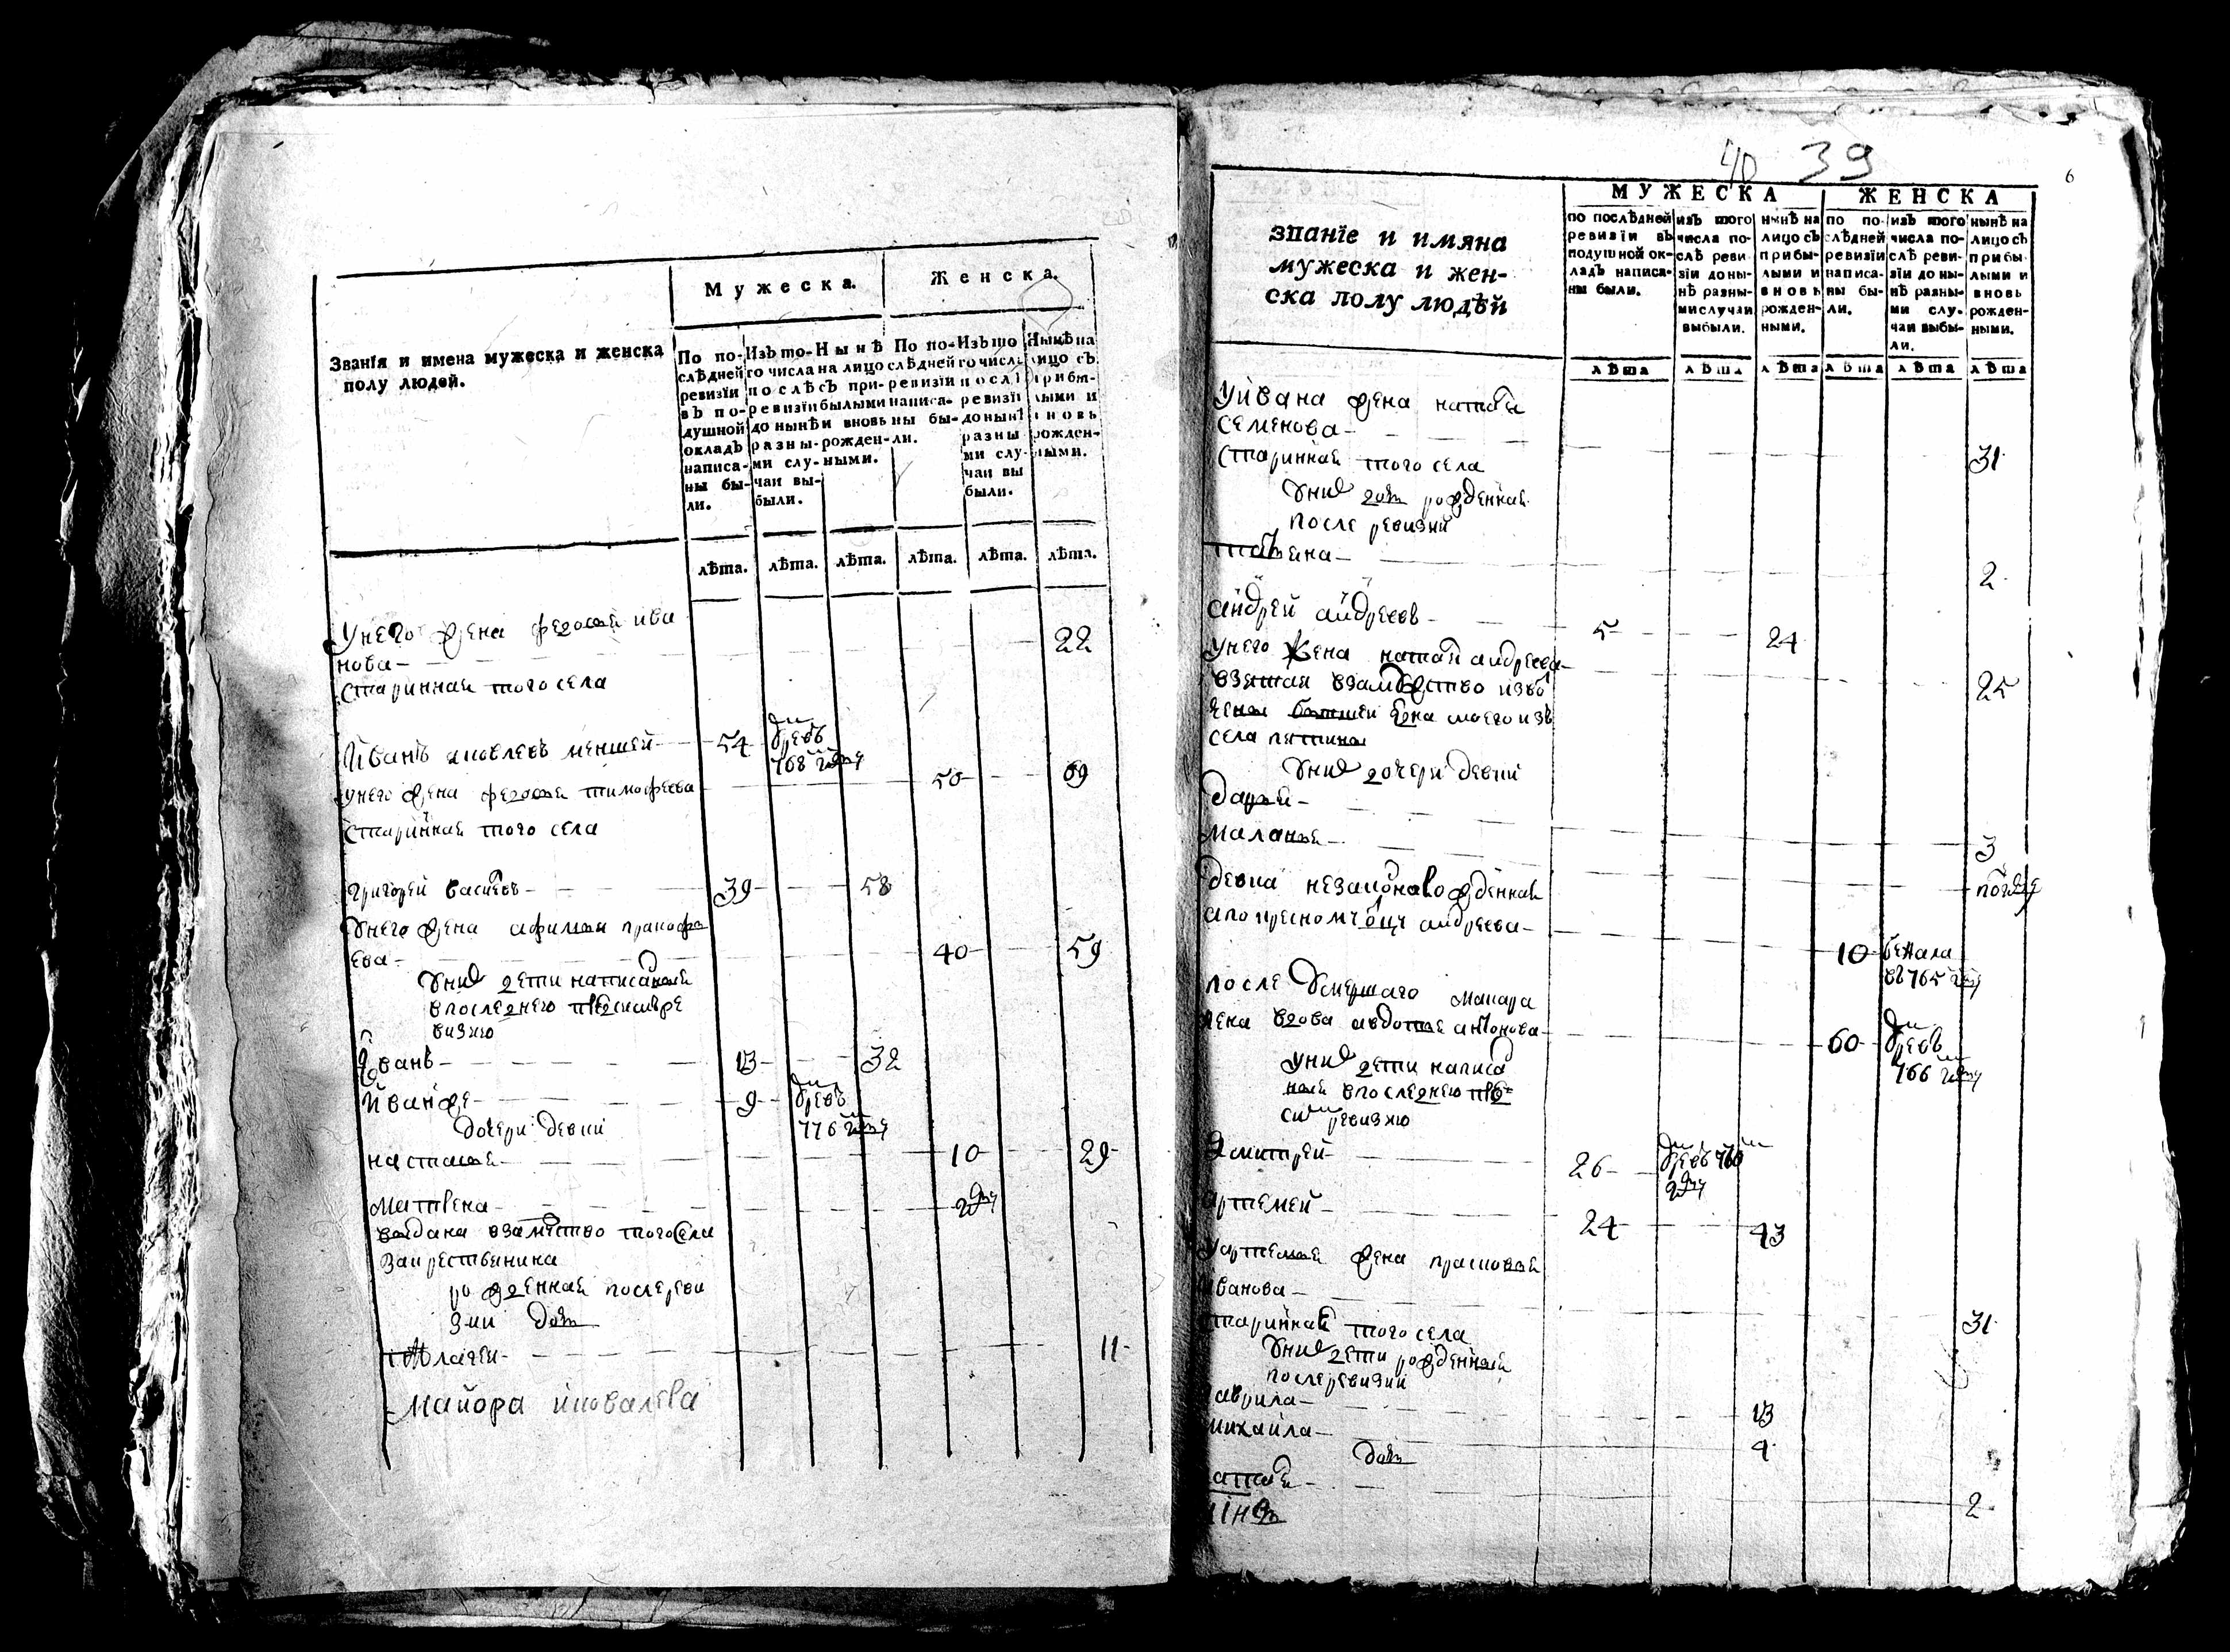 Званїя и имена мужеска и женска
полу людей.
Мужеска.
Женска.
По по-
слѣдней
ревизїи
въ по-
душной
окладъ
написа-
ны бы-
ли.
Изъ то-
го числа
послѣ
ревизїи
до нынѣ
разны-
ми слу-
чаи вы-
были.
Нынѣ
на лицо
съ при-
былыми
и вновь
рожден-
ными.
По по-
слѣдней
ревизїи
написа-
ны бы-
ли.
Изъ то
го числа
послѣ
ревизїи
до нынѣ
разны
ми слу-
чаи вы
были.
Нынѣ на
лицо съ
прибы-
лыми и
вновь
рожден-
ными.
лѣта. лѣта. лѣта. лѣта. лѣта. лѣта.
Унего жена федосья ива
нова — 22
старинная того села
Иванъ яковлевъ меншей — 54 умре въ 768 году
унего жена федосья тимофеева — 50 — 69
старинная того села
григорей васильевъ — 39 — 58
Унего жена афимья
ева — 40 — 59
Уних дети написанныя
впоследнею пред сим ре
визию
Иванъ — 13 — 32
Иванже — 9 — умре въ 776 году
дочери девки
настасья — 10 — 29
матрена — 2
выдана взамужство того села
за крестьянина
рожденная после реви
зии дочь
пелагея — 11
майора
40 39
6
званїе и имяна
мужеска и жен-
ска полу людѣй
МУЖЕСКА
ЖЕНСКА
по послѣдней
ревизїи въ
подушной ок-
ладъ написа-
ны были.
изъ того
числа по-
слѣ реви-
зїи доны-
нѣ разны-
ми случаи
выбыли.
нынѣ на
лицо съ
прибы-
лыми и
вновь
рожден-
ными.
по по-
слѣдней
ревизїи
написа-
ны бы-
ли.
изъ того
числа по-
слѣ реви-
зїи доны-
нѣ разны-
ми слу-
чаи выбы-
ли.
нынѣ на
лицо съ
прибы-
лыми и
вновь
рожден-
ными.
лѣта лѣта лѣта лѣта лѣта лѣта
Уивана жена наталья
семенова — 31
старинная того села
Уних дочь рожденная
после ревизии
татьяна — 2
андрей андреевъ — 5 — 24
унего жена наталья андреева — 25
взятая взамужство
села
Уних дочери девки
дарья — 3
маланья —
девка незаконнорожденная
покресному отцу андреева — 10 бежала въ 765 году
после умершаго макара
жена вдова авдотья антонова — 60 умре въ 766 году
уних дети написан
ныя впоследнею пред
сим ревизию
дмитрей — 26 — умре въ году
артемей — 24 — 43
Уартемья жена прасковья
иванова — 31
старинная того села
Уних дети рожденныя
после ревизии
гаврила — 13
михаила — 4
дочь
наталья — 2